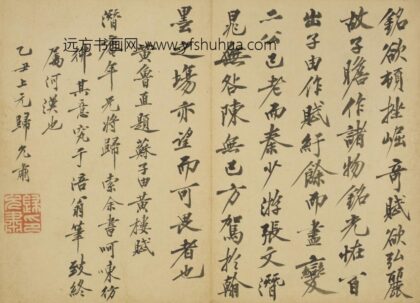 銘欲頓挫崛奇賦欲弘麗
故子瞻作諸物銘光怪百
出子由作賦紆餘而盡變
二公已老而秦少游張文潛
晁無咎陳無己方駕於翰
墨之場亦望而可畏者也
黃魯直題蘇子由黃樓賦
潛年兄將歸索余書呵凍仿
其意究于涪翁筆致終
屬河漢也
乙丑上元歸允肅
远方书画网-www.yfshuhua.com